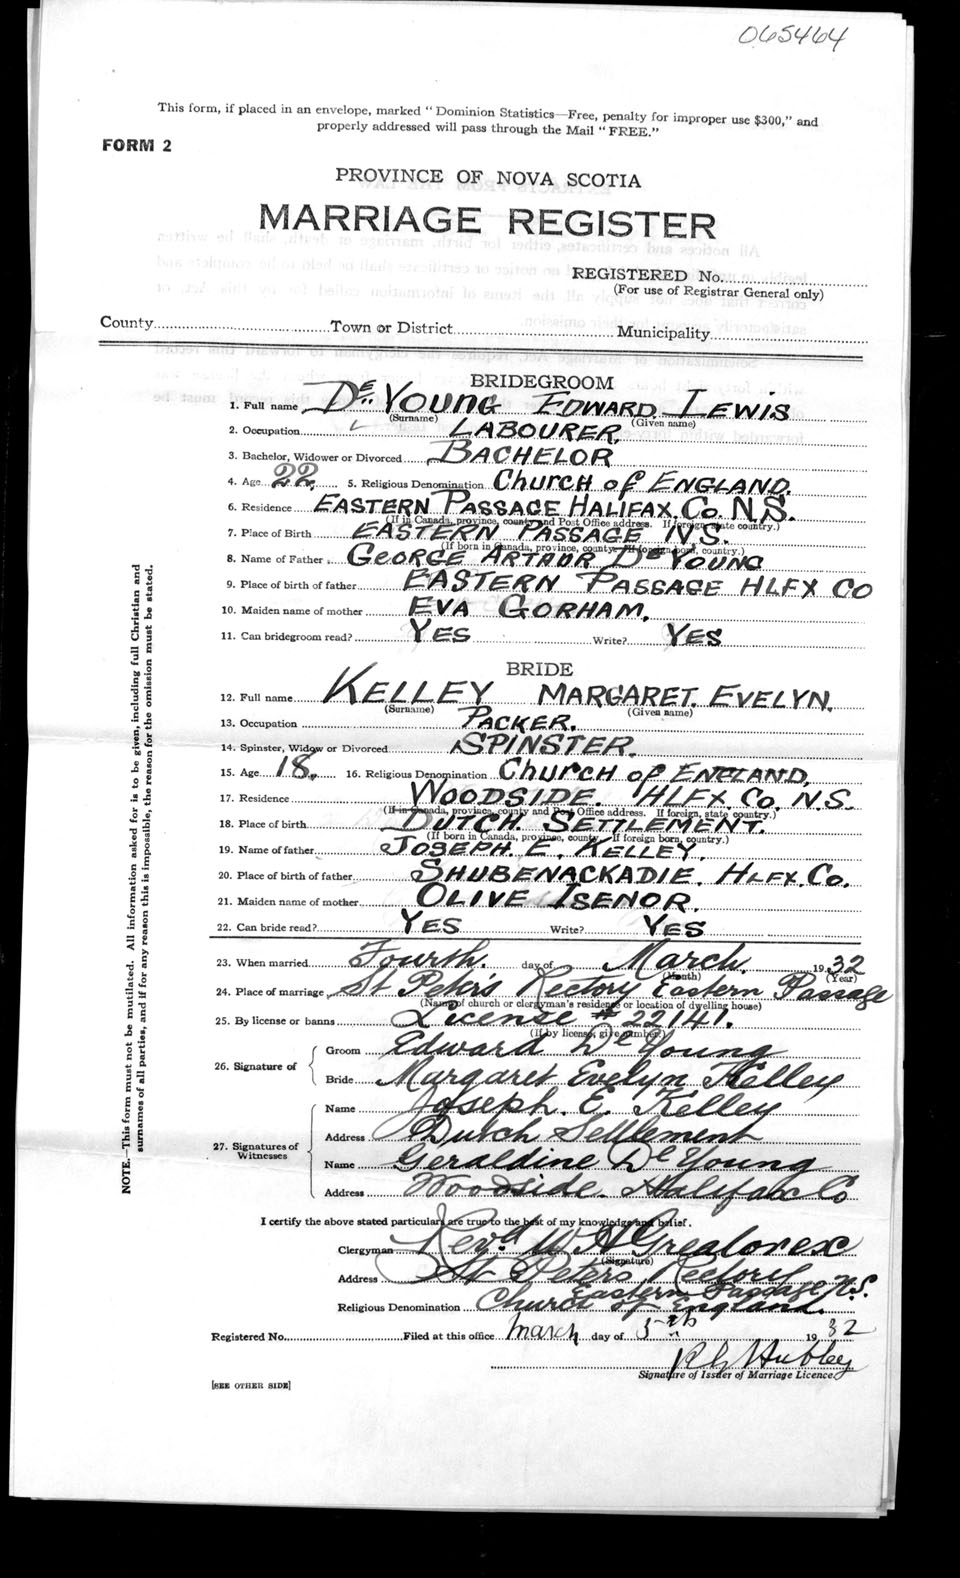 065464
This form, if placed in an envelope, marked "Dominion Statistics—Free, penalty for improper use $300," and
properly addressed will pass through the Mail "FREE."
FORM 2
PROVINCE OF NOVA SCOTIA
MARRIAGE REGISTER
REGISTERED No.
(For use of Registrar General only)
County Town or District Municipality
BRIDEGROOM
1. Full name De Young Edward Lewis
(Surname) (Given name)
2. Occupation LABOURER
3. Bachelor, Widower or Divorced BACHELOR
4. Age 22 5. Religious Denomination Church of ENGLAND.
6. Residence EASTERN PASSAGE HALIFAX. Co. N.S.
(If in Canada, province, county and Post Office address. If foreign, state country.)
7. Place of Birth EASTERN PASSAGE N.S.
(If born in Canada, province, county. If foreign born, country.)
8. Name of Father GEORGE ARTHUR De YOUNG
9. Place of birth of father EASTERN PASSAGE HLFX CO
10. Maiden name of mother EVA GORHAM.
11. Can bridegroom read? YES Write? YES
BRIDE
12. Full name KELLEY MARGARET. EVELYN.
(Surname) (Given name)
13. Occupation PACKER.
14. Spinster, Widow or Divorced SPINSTER.
15. Age 18. 16. Religious Denomination Church of ENGLAND.
17. Residence WOODSIDE. HLFX. Co. N.S.
(If in Canada, province, county and Post Office address. If foreign, state country.)
18. Place of birth DUTCH. SETTLEMENT.
(If born in Canada, province, county. If foreign born, country.)
19. Name of father JOSEPH. E. KELLEY.
20. Place of birth of father SHUBENACKADIE. HLFX. Co.
21. Maiden name of mother OLIVE ISENOR.
22. Can bride read? YES Write? YES
23. When married Fourth. day of March. 1932
(Month) (Year)
24. Place of marriage St Peter's Rectory Eastern Passage
(Name of church or clergyman's residence or location of dwelling house)
25. By license or banns License # 22141.
(If by license, give number.)
26. Signature of Groom Edward De Young
Bride Margaret Evelyn Kelley
27. Signatures of Witnesses Name Joseph. E. Kelley
Address Dutch Settlement
Name Geraldine De Young
Address Woodside. Halifax Co
I certify the above stated particulars are true to the best of my knowledge and belief.
Clergyman Revd W A Greatorex
(Signature)
Address St Peters Rectory
Eastern Passage N.S.
Religious Denomination Church of England.
Registered No. Filed at this office March day of 5th 1932
R G Hubley
Signature of Issuer of Marriage Licence.
[SEE OTHER SIDE]
NOTE.—This form must not be mutilated. All information asked for is to be given, including full Christian and
surnames of all parties, and if for any reason this is impossible, the reason for the omission must be stated.